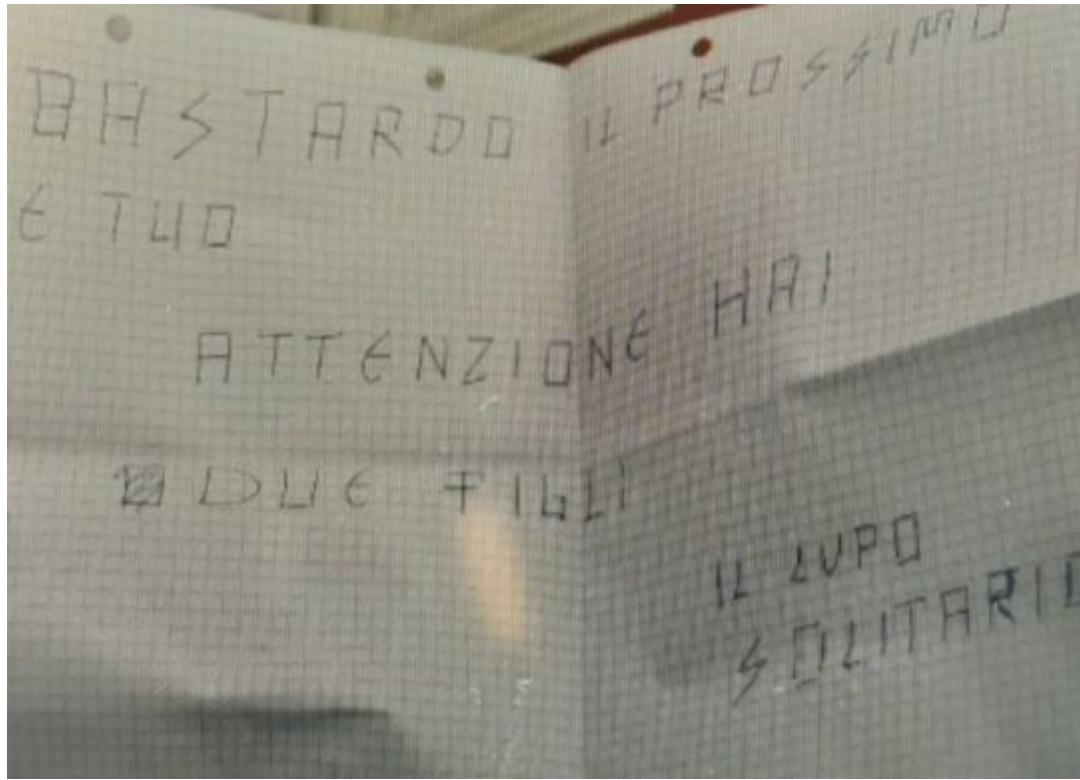 BASTARDO IL PROSSIMO
E TUO
ATTENZIONE HAI
DUE FIGLI
IL LUPO
SOLITARIO